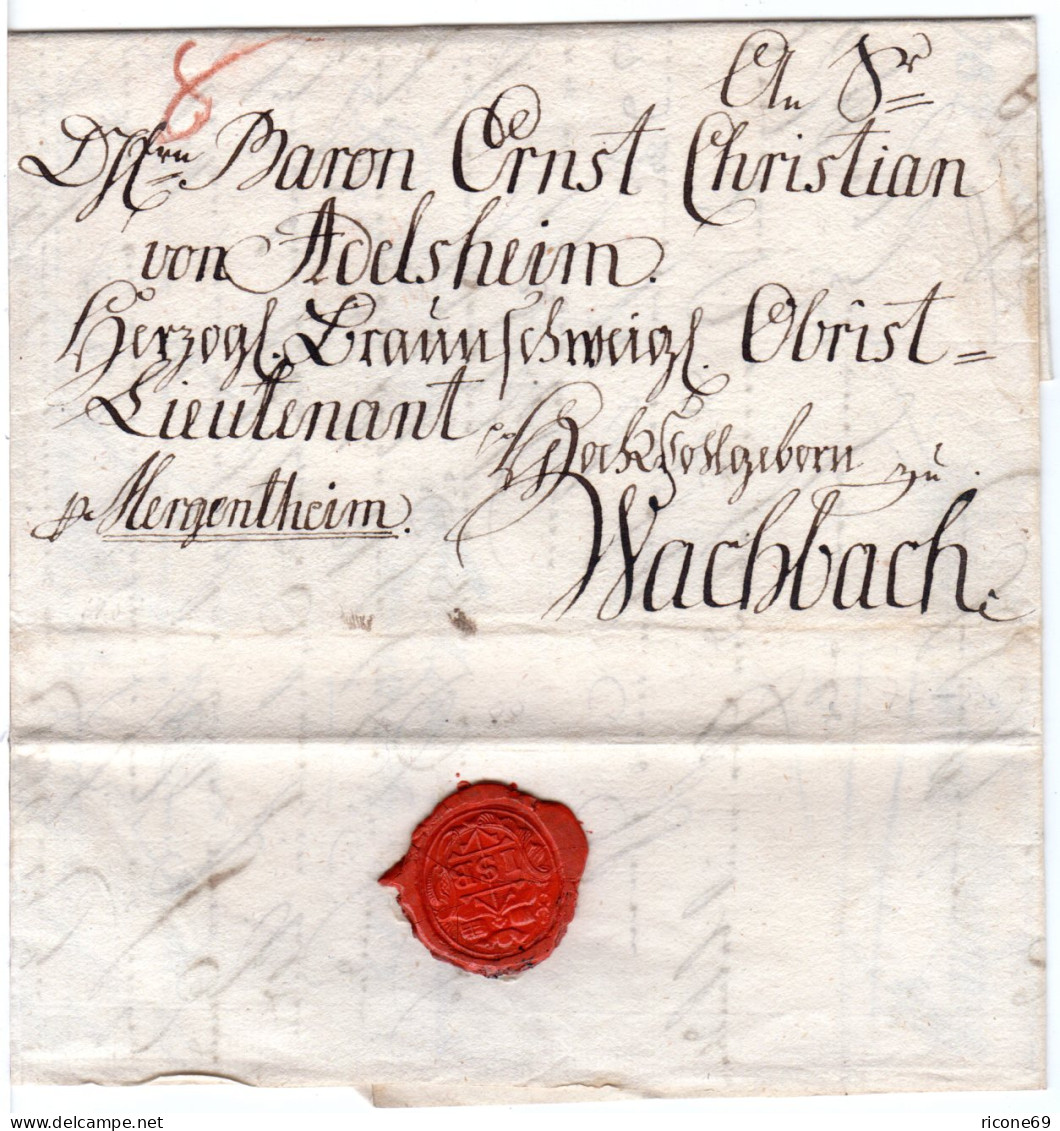 8
An Sr
DHrn Baron Ernst Christian
von Adelsheim.
Herzogl. Braunschweigl. Obrist=
Lieutenant
Hochwohlgeborn zu
p. Mergentheim.
Wachbach.
ricone69